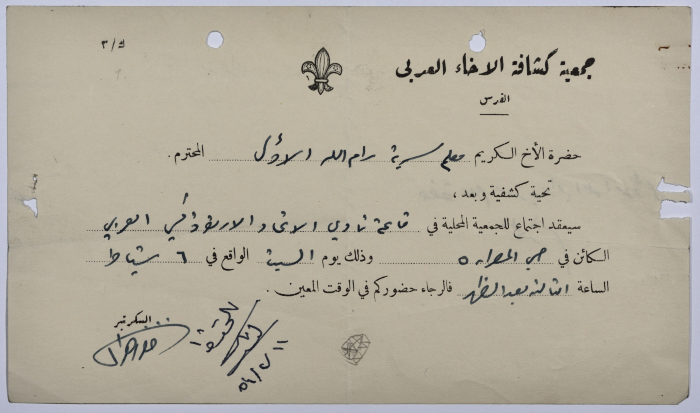 ك/٣
جمعية كشافة الاخاء العربي
القدس
حضرة الأخ الكريم معلم سرية رام الله الاولى المحترم.
تحية كشفية وبعد،
سيعقد اجتماع للجمعية المحلية في قاعة نادي الاتحاد الارثوذكسي العربي
الكائن في حي المصرارة وذلك يوم السبت الواقع في ٦ شباط
الساعة الثالثة بعد الظهر فالرجاء حضوركم في الوقت المعين.
السكرتير